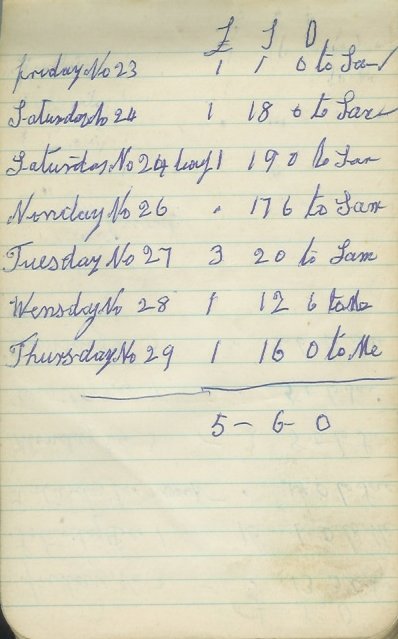 £ S D
Friday No 23 1 1 0 to Sam
Saturday No 24 1 18 6 to Sam
Saturday No 24 1 19 0 to Sam
Monday No 26 . 17 6 to Sam
Tuesday No 27 3 2 0 to Sam
Wensday No 28 1 12 6 to Me
Thursday No 29 1 16 0 to Me
5 - 6 - 0